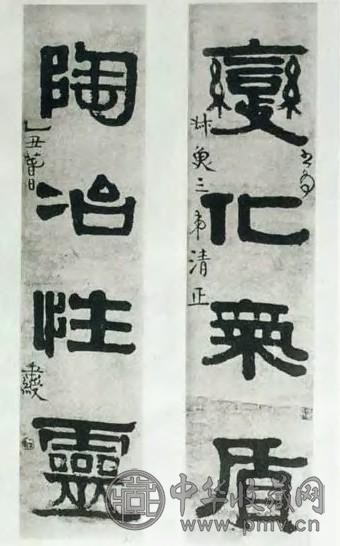 變化氣質
三弟清正
陶冶性靈
乙丑
中华收藏网
www.pmv.cn